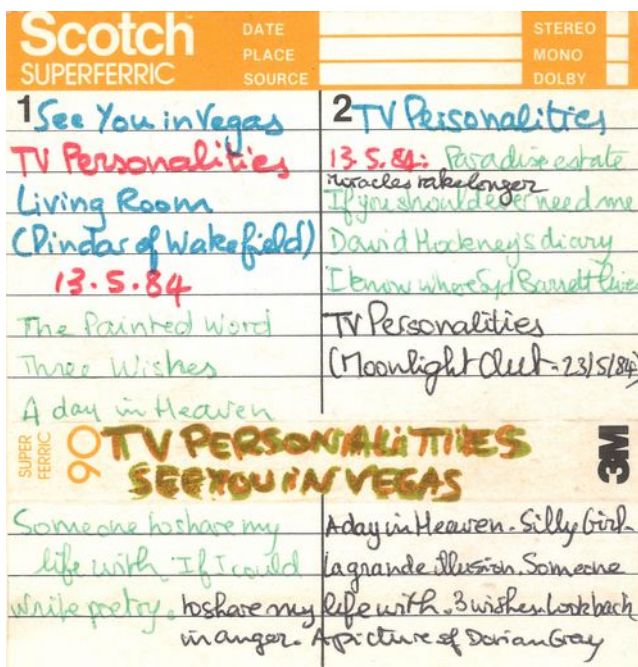 Scotch
SUPERFERRIC
DATE
PLACE
SOURCE
STEREO
MONO
DOLBY
1 See You in Vegas
TV Personalities
Living Room
(Pindar of Wakefield)
13.5.84
The Painted Word
Three Wishes
A day in Heaven
2 TV Personalities
13.5.84: Paradise estate
Miracles take longer
If you should ever need me
David Hockney's diary
I know where Syd Barrett lives
TV Personalities
(Moonlight Club - 23/5/84)
SUPER
FERRIC
90
TV PERSONALITIES
SEE YOU IN VEGAS
3M
Someone to share my
life with. If I could
write poetry.
A day in Heaven. Silly Girl.
La grande illusion. Someone
to share my life with. 3 wishes. Look back
in anger. A picture of Dorian Gray